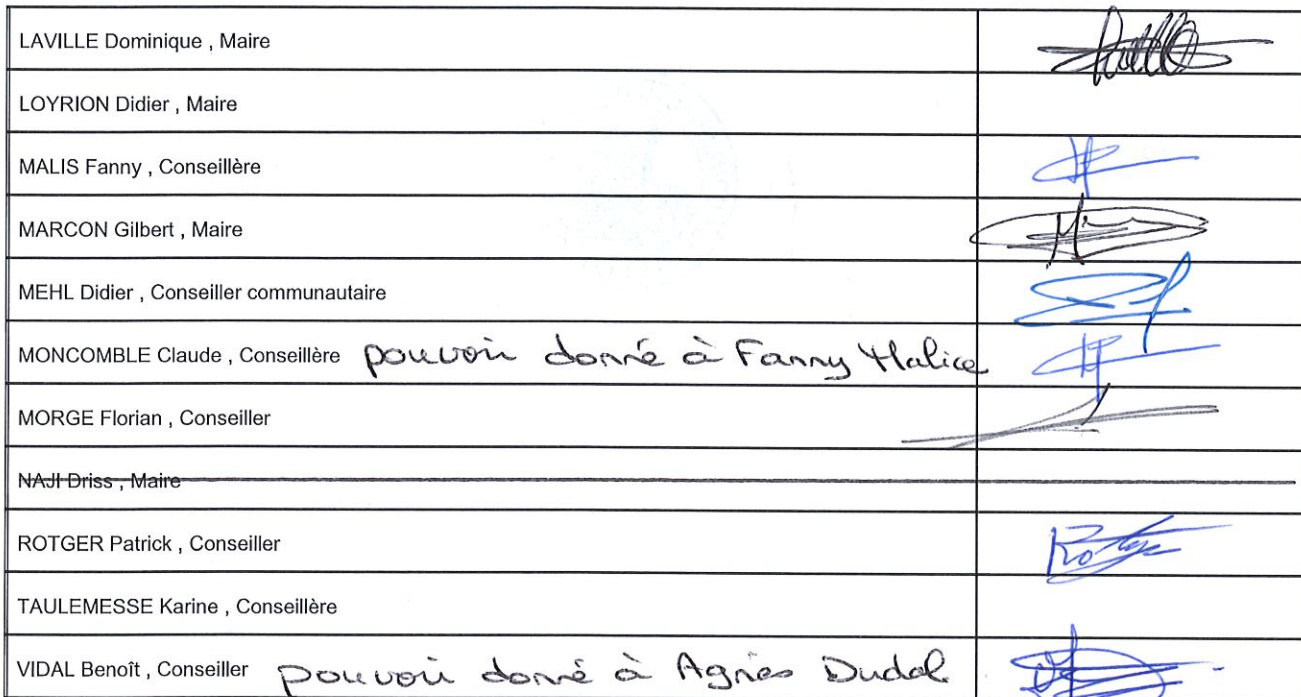 LAVILLE Dominique , Maire
LOYRION Didier , Maire
MALIS Fanny , Conseillère
MARCON Gilbert , Maire
MEHL Didier , Conseiller communautaire
MONCOMBLE Claude , Conseillère pouvoir donné à Fanny Malice
MORGE Florian , Conseiller
NAJI Driss , Maire
ROTGER Patrick , Conseiller
TAULEMESSE Karine , Conseillère
VIDAL Benoît , Conseiller pouvoir donné à Agnès Dudal